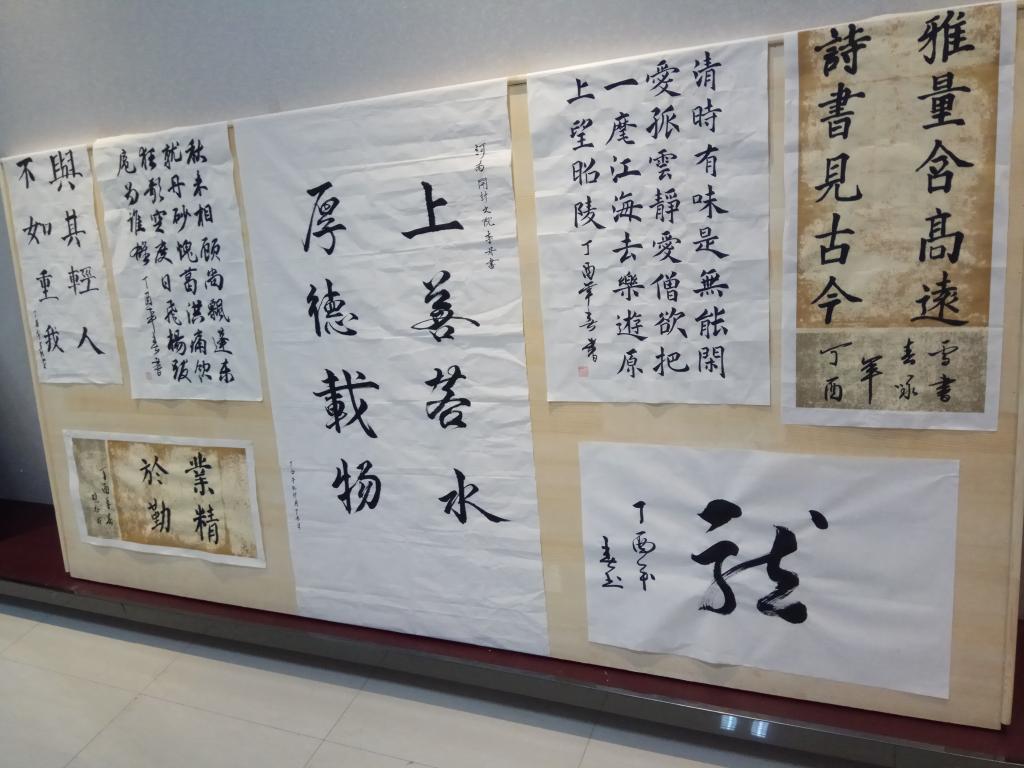 雅量含髙遠
詩書見古今
雪書
春咏
年
丁酉
清時有味是無能閑
愛孤雲靜愛僧欲把
一麾江海去樂遊原
上望昭陵 丁酉年春書
龍
丁酉年
上善若水
厚德載物
秋来相顧尚飄蓬未
就丹砂愧葛洪痛飲
狂歌空度日飛揚跋
扈为誰雄 丁酉年春書
與其輕人
不如重我
業精
於勤
丁酉